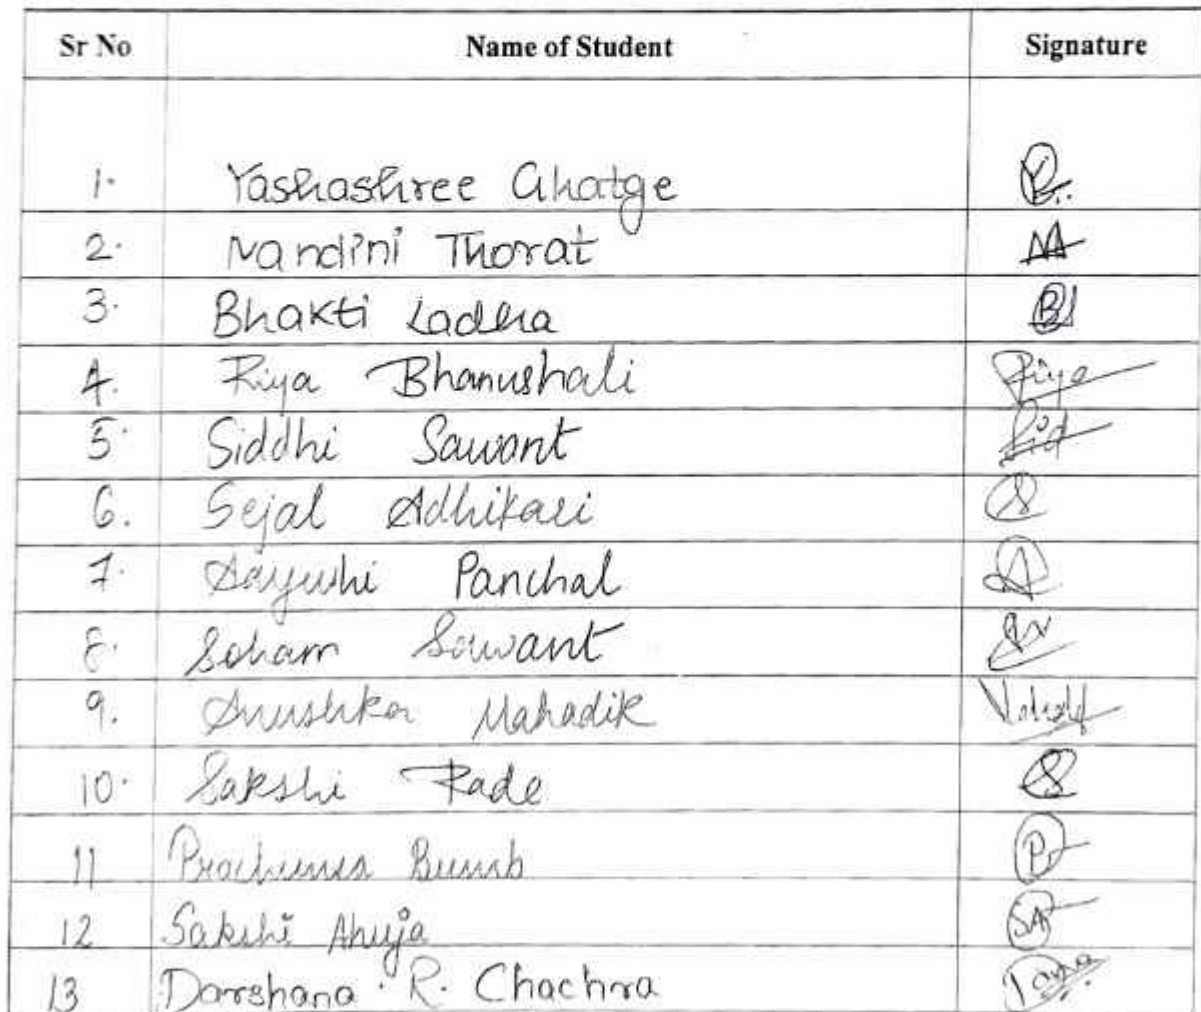 Sr No Name of Student Signature
1. Yashashree Ghatge
2. Nandini Thorat
3. Bhakti Ladha B
4. Riya Bhanushali Riya
5. Siddhi Sawant Sid
6. Sejal Adhikari S
7. Aayushi Panchal A
8. Soham Sawant
9. Anushka Mahadik
10. Sakshi Rade S
11 Bumb
12 Sakshi Ahuja SA
13 Darshana . R. Chachra